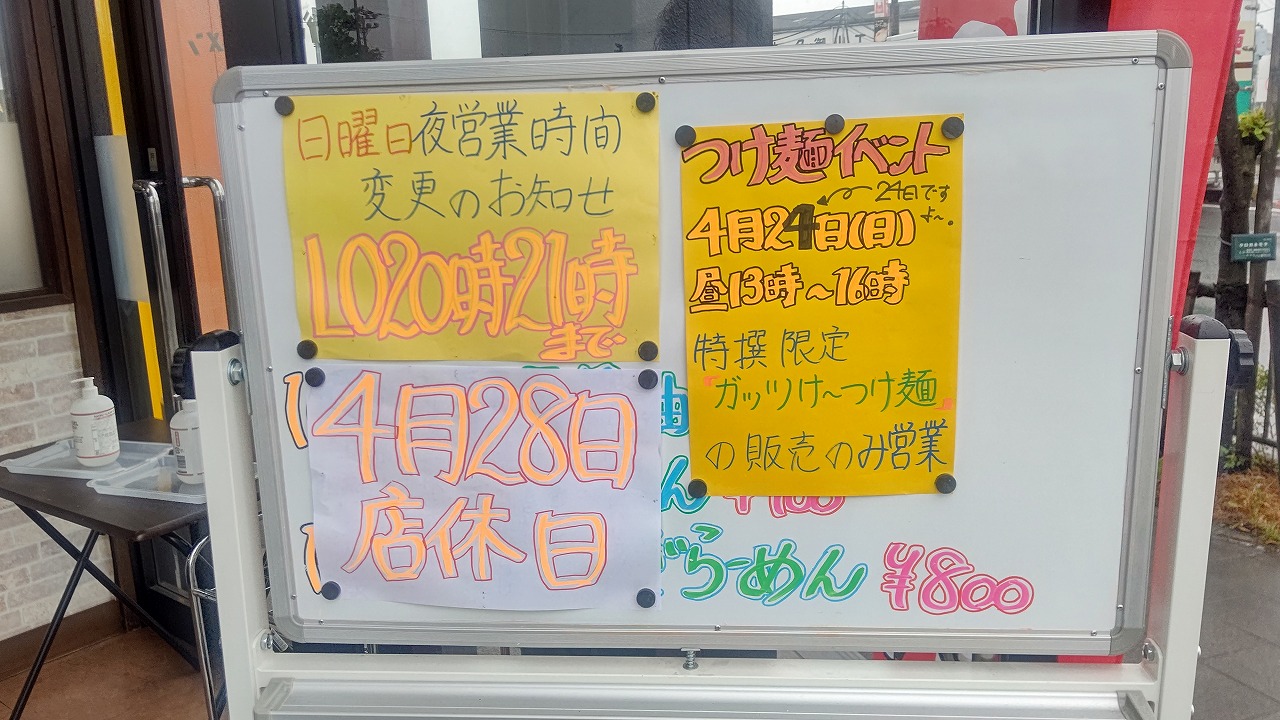 日曜日夜営業時間
変更のお知せ
LO20時21時
まで
4月28日
店休日
つけ麺イベント
24日です
よ〜。
4月24日(日)
昼13時〜16時
特撰限定
"ガッツけ〜つけ麺"
の販売のみ営業
らーめん ¥800